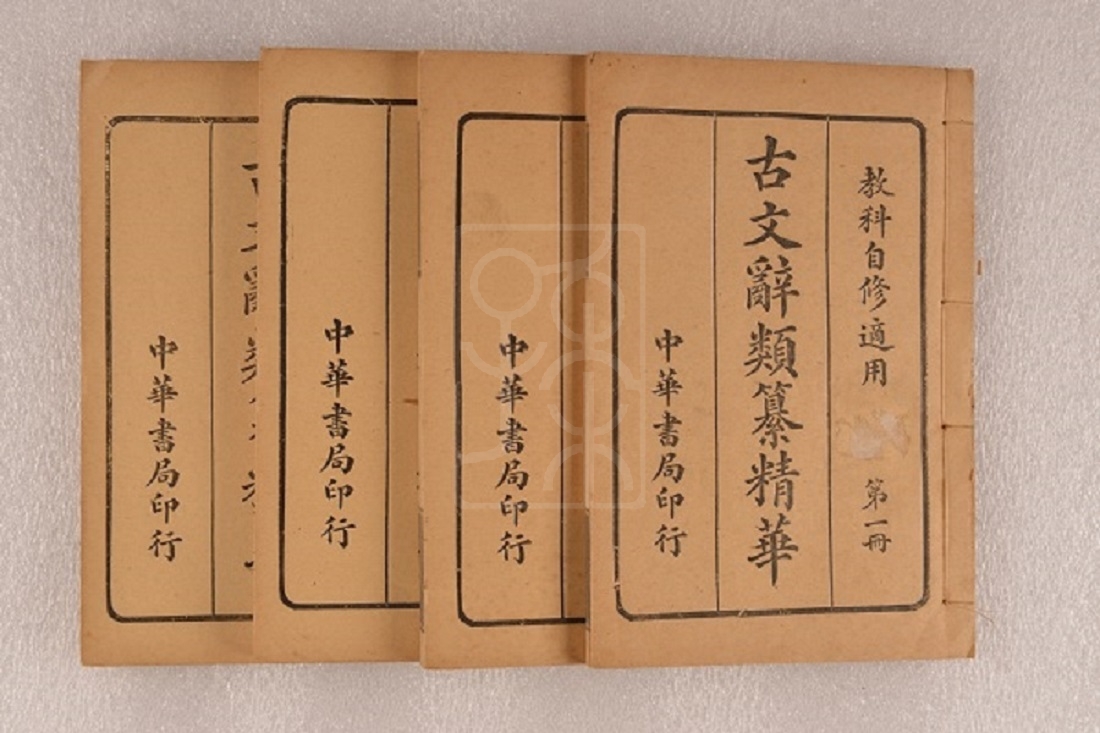 教科自修適用
第一冊
古文辭類纂精華
中華書局印行
中華書局印行
中華書局印行
中華書局印行